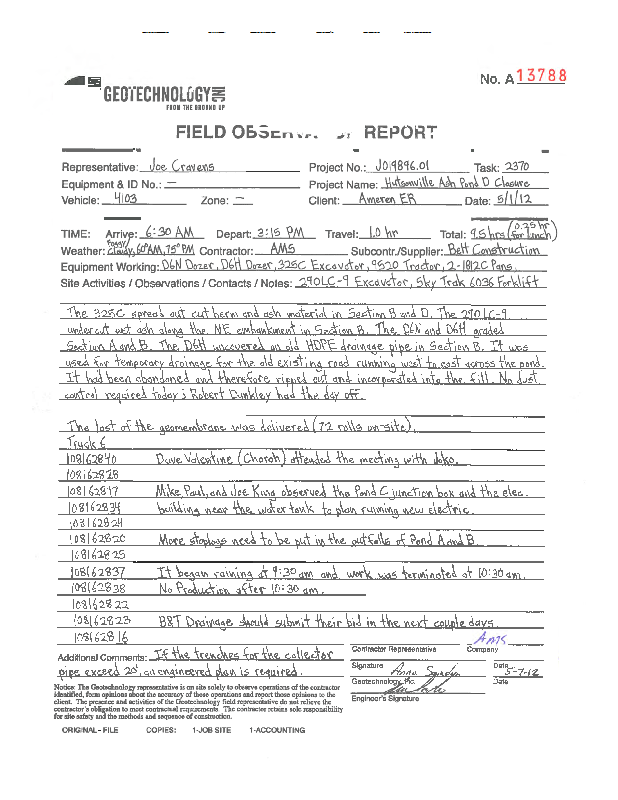 No. A 13788
GEOTECHNOLOGY INC
FROM THE GROUND UP
FIELD OBSERVATION REPORT
Representative: Joe Cravens Project No.: J019896.01 Task: 2370
Equipment & ID No.: — Project Name: Hutsonville Ash Pond D Closure
Vehicle: 4103 Zone: — Client: Ameren ER Date: 5/1/12
TIME: Arrive: 6:30 AM Depart: 3:15 PM Travel: 1.0 hr Total: 9.5 hrs (0.25 hr for lunch)
Weather: Foggy/Cloudy, 60°AM, 75°PM Contractor: AMS Subcontr./Supplier: Bett Construction
Equipment Working: D6N Dozer, D6H Dozer, 325C Excavator, 9520 Tractor, 2-1812C Pans.
Site Activities / Observations / Contacts / Notes: 290LC-9 Excavator, Sky Trak 6036 Forklift
The 325C spread out cut berm and ash material in Section B and D. The 290LC-9
undercut wet ash along the NE embankment in Section B. The D6N and D6H graded
Section A and B. The D6H uncovered an old HDPE drainage pipe in Section B. It was
used for temporary drainage for the old existing road running west to east across the pond.
It had been abandoned and therefore ripped out and incorporated into the fill. No dust
control required today; Robert Dunkley had the day off.
The last of the geomembrane was delivered (72 rolls on-site).
Truck 6
108162840 Dave Valentine (Charah) attended the meeting with Jako.
108162828
108162817 Mike, Paul, and Joe King observed the Pond C junction box and the elec.
108162834 building near the water tank to plan running new electric.
108162824
108162820 More stoplogs need to be put in the outfalls of Pond A and B.
108162825
108162837 It began raining at 9:30 am and work was terminated at 10:30 am.
108162838 No Production after 10:30 am.
108162822
108162823 B&T Drainage should submit their bid in the next couple days.
108162816
AMS
Contractor Representative Company
Additional Comments: If the trenches for the collector
pipe exceed 20', an engineered plan is required.
Signature Date 5-7-12
Geotechnology, Inc. Date
Engineer's Signature
Notice: The Geotechnology representative is on site solely to observe operations of the contractor
identified, form opinions about the accuracy of those operations and report those opinions to the
client. The presence and activities of the Geotechnology field representative do not relieve the
contractor's obligation to meet contractual requirements. The contractor retains sole responsibility
for site safety and the methods and sequence of construction.
ORIGINAL - FILE COPIES: 1-JOB SITE 1-ACCOUNTING